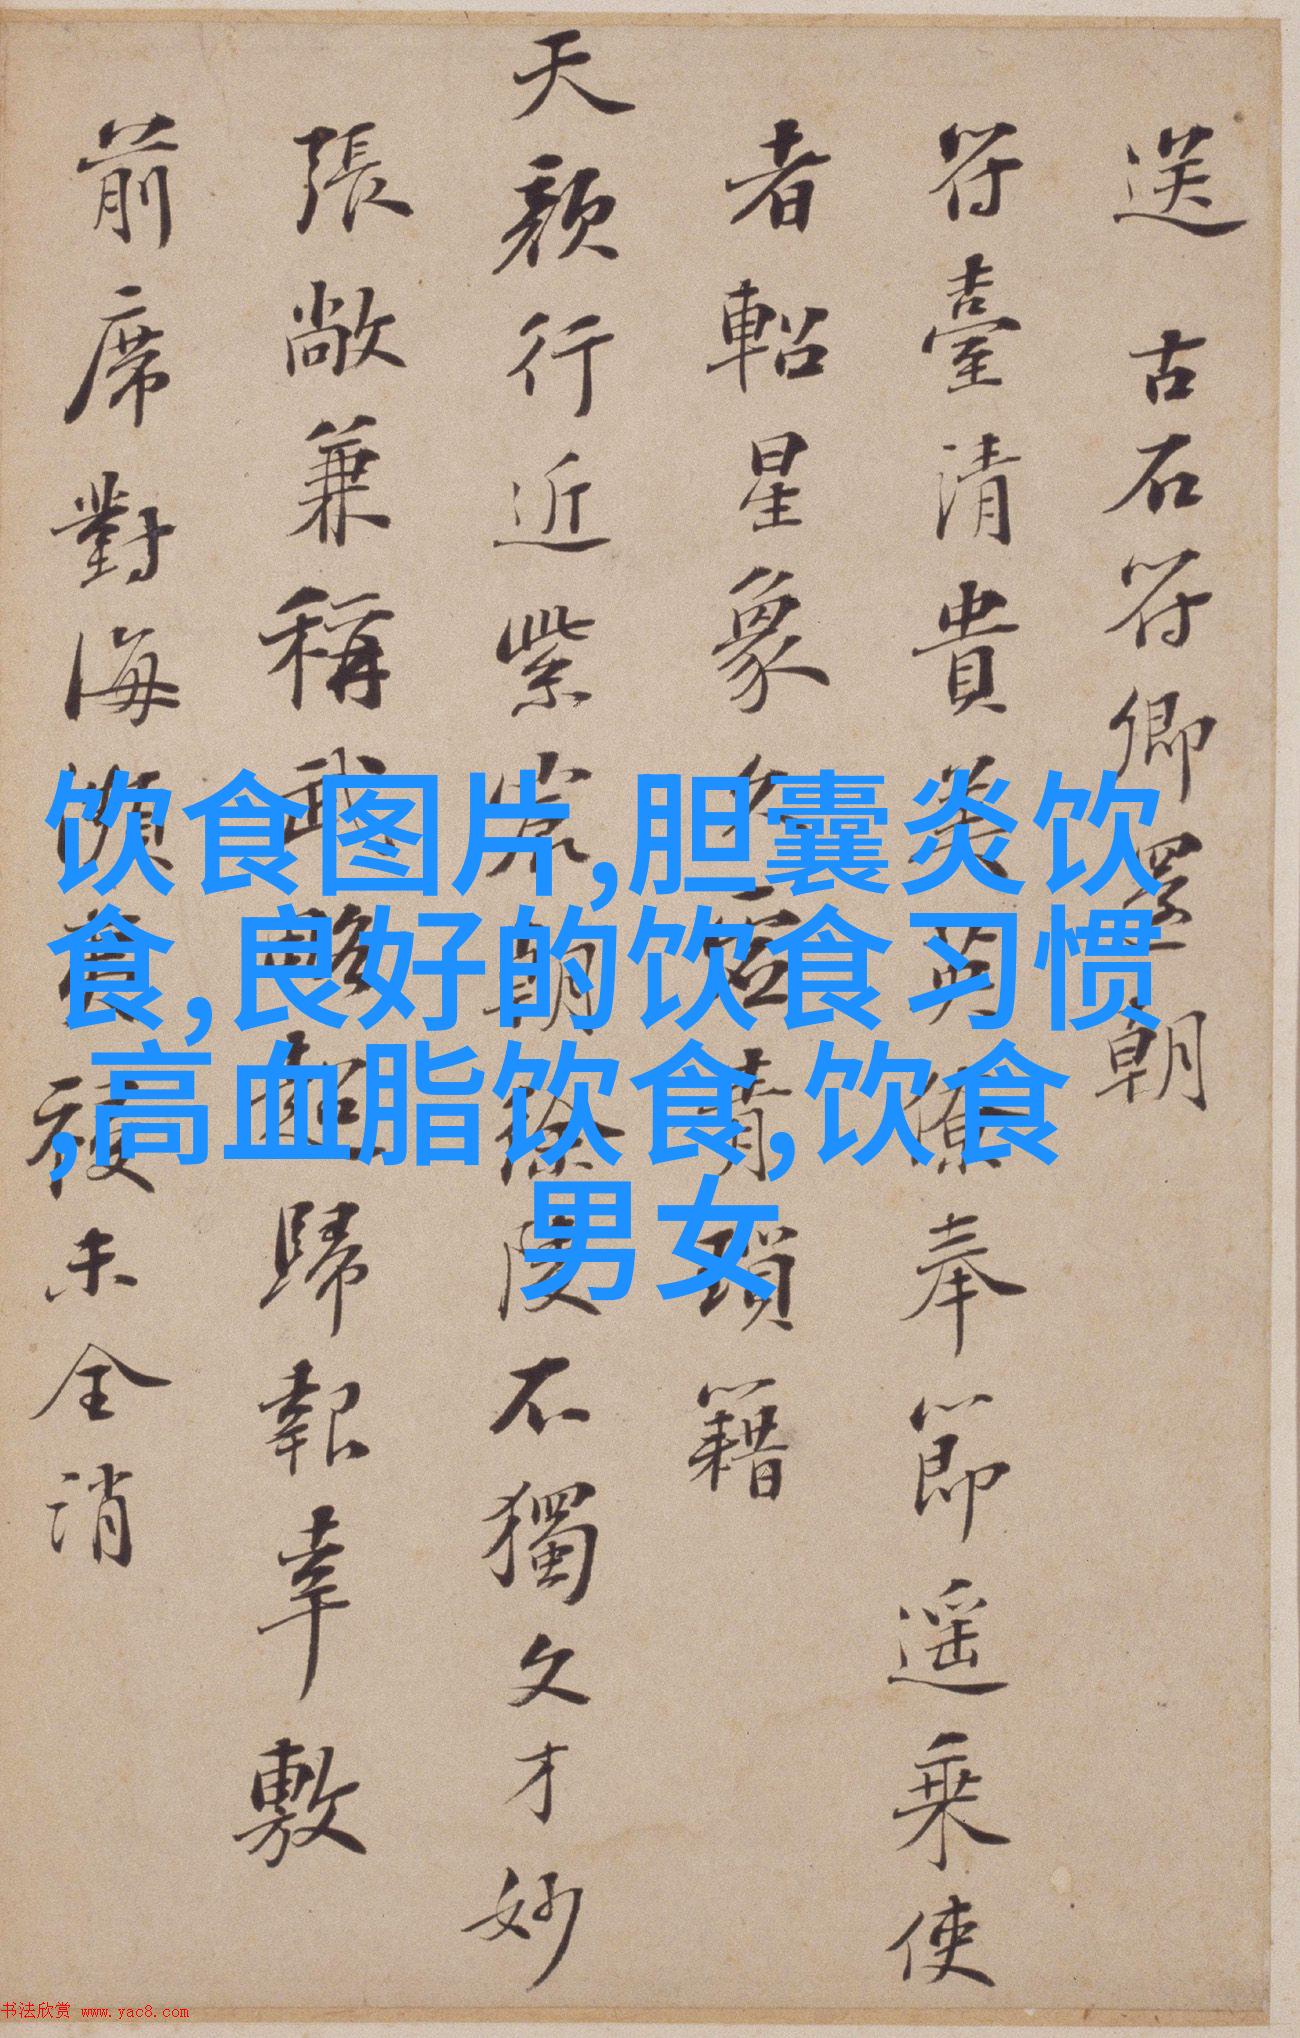 送 古石符卿 朝
符臺清貴 奉節遥乗使
者軺星象 青瑣籍
天顔行近紫 朝 陵不獨文才妙
張敞兼稱武略 歸報幸敷
前席對海 未全消
饮食图片,胆囊炎饮
食,良好的饮食习惯
,高血脂饮食,饮食
男女
书法欣赏 www.yac8.com